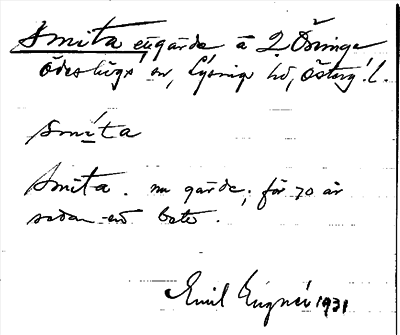 Smita, ängärde å 2 Öringe
Ödeshögs sn, Lysings hd, Östergl.
smita
Smita. nu gärde; för 70 år
sedan -en bete.
Emil Eugnér 1931